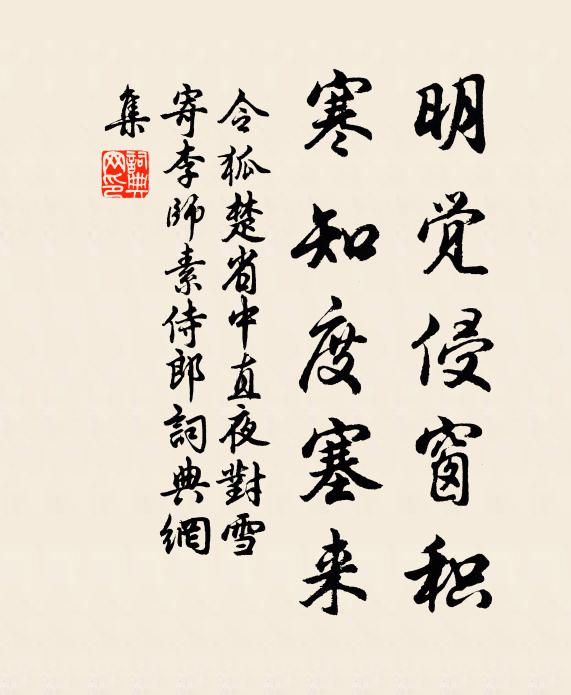 明觉侵窗积
寒知度塞来
令狐楚省中直夜對雪
寄李師素侍郎詞典網
集
詞典
网印